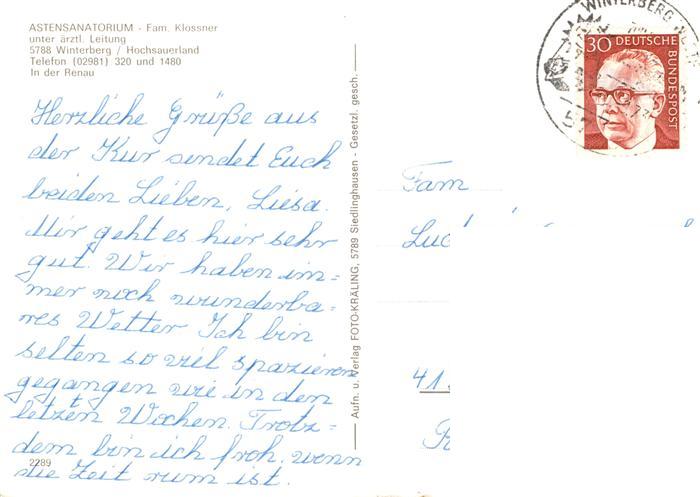 ASTENSANATORIUM - Fam. Klossner
unter ärztl. Leitung
5788 Winterberg / Hochsauerland
Telefon (02981) 320 und 1480
In der Renau
Herzliche Grüße aus
der Kur sendet Euch
beiden Lieben, Liesa.
Mir geht es hier sehr
gut. Wir haben im=
mer noch wunderba=
res Wetter Ich bin
selten so viel spazieren
gegangen wie in den
letzen Wochen. Trotz=
dem bin ich froh, wenn
die Zeit rum ist.
2289
Aufn. u. Verlag FOTO-KRÄLING, 5789 Siedlinghausen - Gesetzl. gesch.
WINTERBERG
57
30 DEUTSCHE
BUNDESPOST
Fam
41